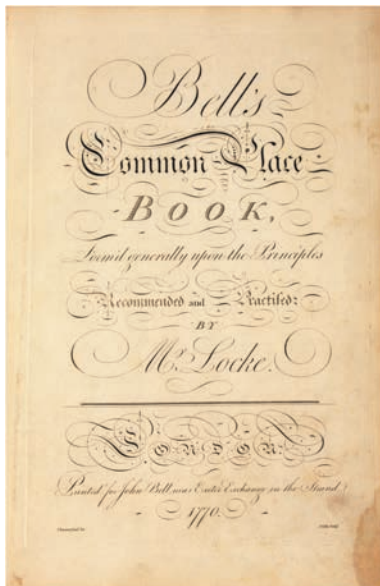 Bell's
Common Place
BOOK,
Form'd generally upon the Principles
Recommended and Practised
BY
Mr. Locke.
LONDON:
Printed for John Bell, near Exeter Exchange, in the Strand
1770.